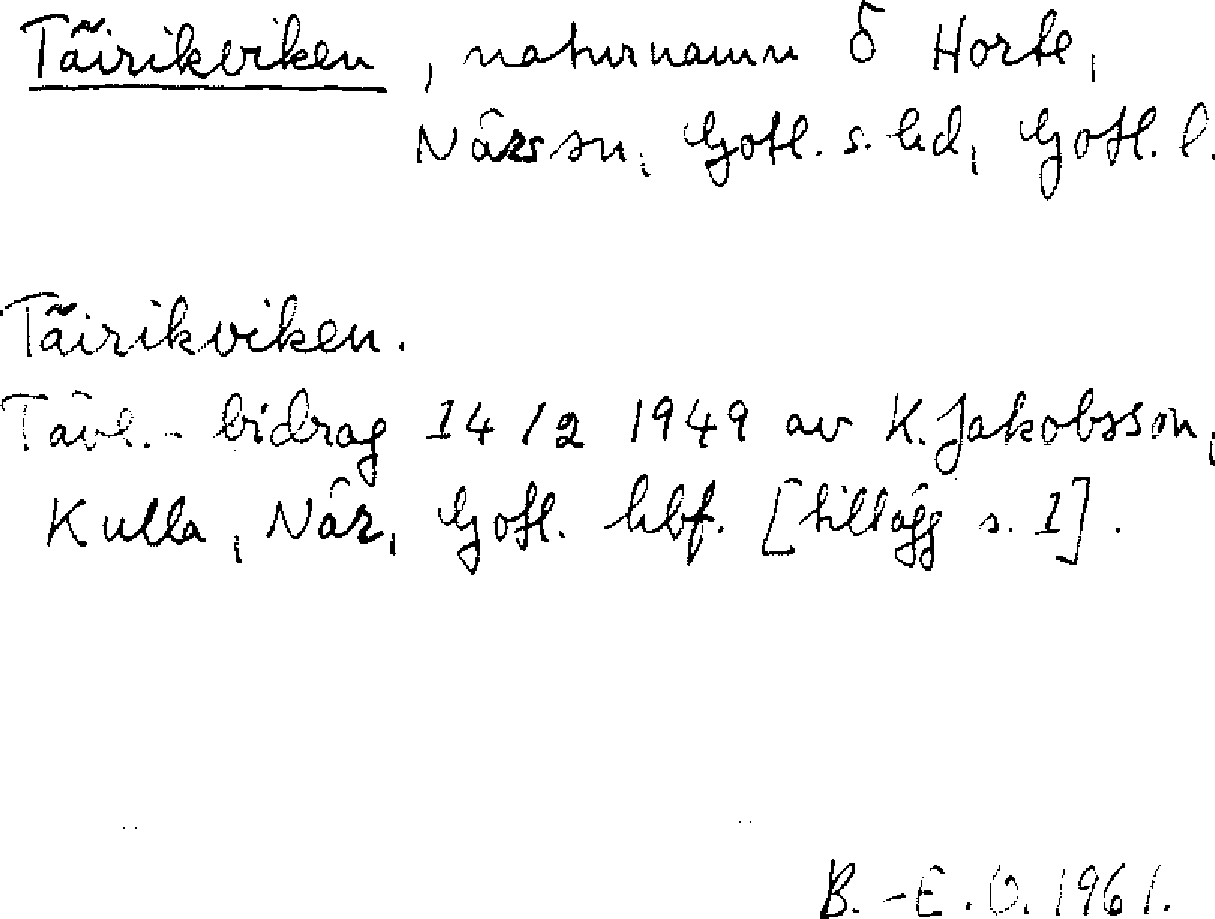 Täirikviken, naturnamn Ö Horte,
När sn, Gotl. s. hd, Gotl. l.
Täirikviken.
Tävl.-bidrag 14/2 1949 av K. Jakobsson,
Kulla, När, Gotl. hbf. [tillägg s. 1].
B.-E. O. 1961.